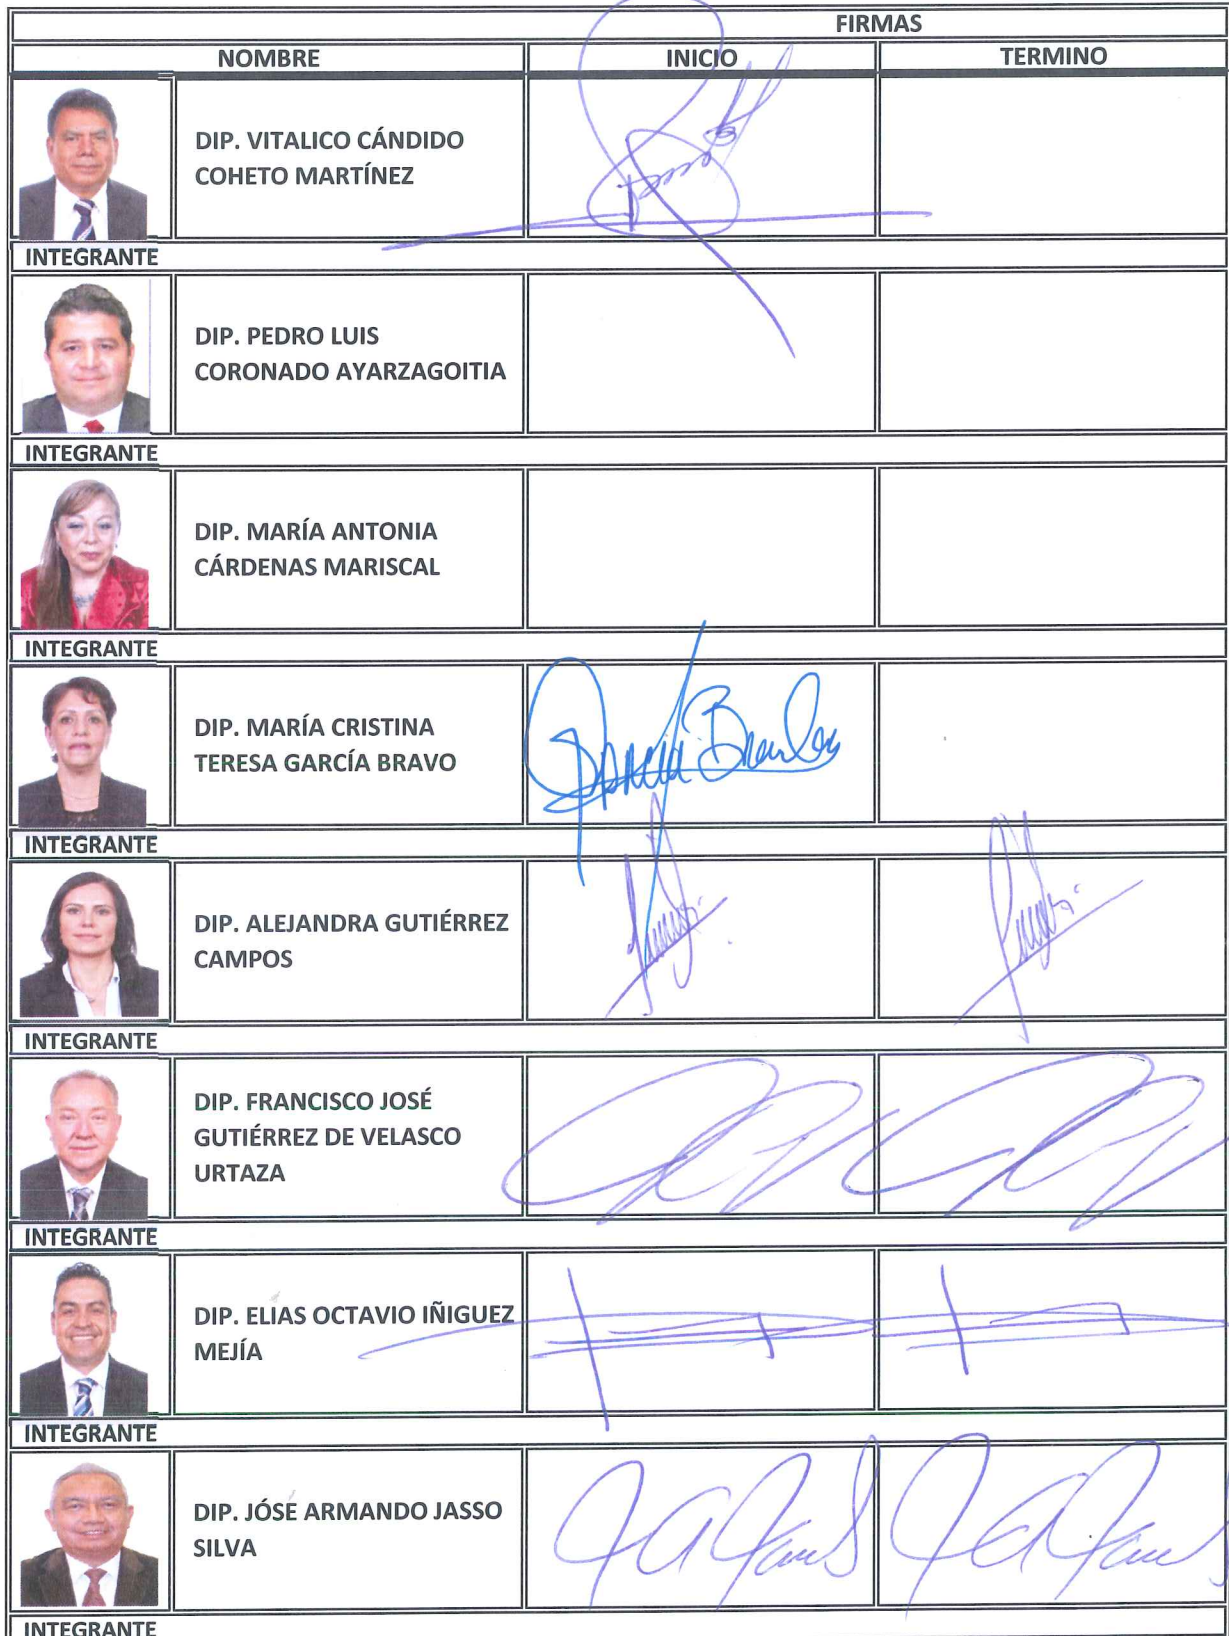 FIRMAS
NOMBRE INICIO TERMINO
DIP. VITALICO CÁNDIDO
COHETO MARTÍNEZ
INTEGRANTE
DIP. PEDRO LUIS
CORONADO AYARZAGOITIA
INTEGRANTE
DIP. MARÍA ANTONIA
CÁRDENAS MARISCAL
INTEGRANTE
DIP. MARÍA CRISTINA
TERESA GARCÍA BRAVO
INTEGRANTE
DIP. ALEJANDRA GUTIÉRREZ
CAMPOS
INTEGRANTE
DIP. FRANCISCO JOSÉ
GUTIÉRREZ DE VELASCO
URTAZA
INTEGRANTE
DIP. ELIAS OCTAVIO IÑIGUEZ
MEJÍA
INTEGRANTE
DIP. JÓSE ARMANDO JASSO
SILVA
INTEGRANTE